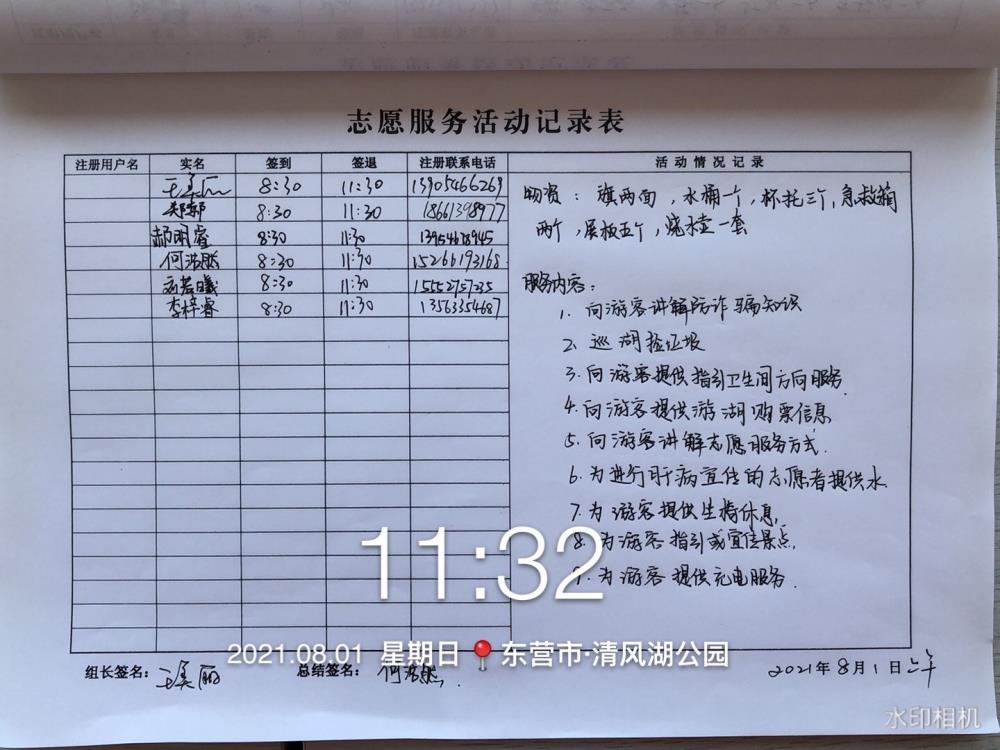 志愿服务活动记录表
注册用户名 实名 签到 签退 注册联系电话 活动情况记录
8:30 11:30 13905466269
郑郭 8:30 11:30 18661398977
郝明睿 8:30 11:30 13954618945
何浩然 8:30 11:30 15266193168
8:30 11:30 15552757235
李梓睿 8:30 11:30 13563354687
物资：旗两面，水桶一个，杯托三个，急救箱
两个，展板五个，烧水壶一套
服务内容：
1. 向游客讲解防诈骗知识
2. 巡湖捡垃圾
3. 向游客提供指引卫生间方向服务
4. 向游客提供游湖购票信息
5. 向游客讲解志愿服务方式.
6. 为进行肝病宣传的志愿者提供水
7. 为游客提供坐椅休息,
8. 为游客指引或宣传景点,
9. 为游客提供充电服务.
11:32
2021.08.01 星期日 东营市·清风湖公园
组长签名： 总结签名：何浩然. 2021年8月1日上午
水印相机